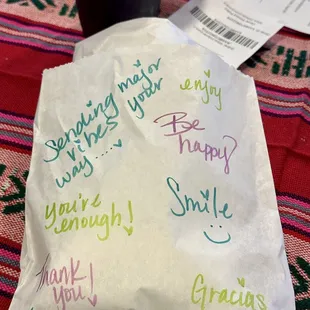 Sending major
vibes your
way....
enjoy
Be
happy?
You're
enough!
Smile
Thank
you!
Gracias